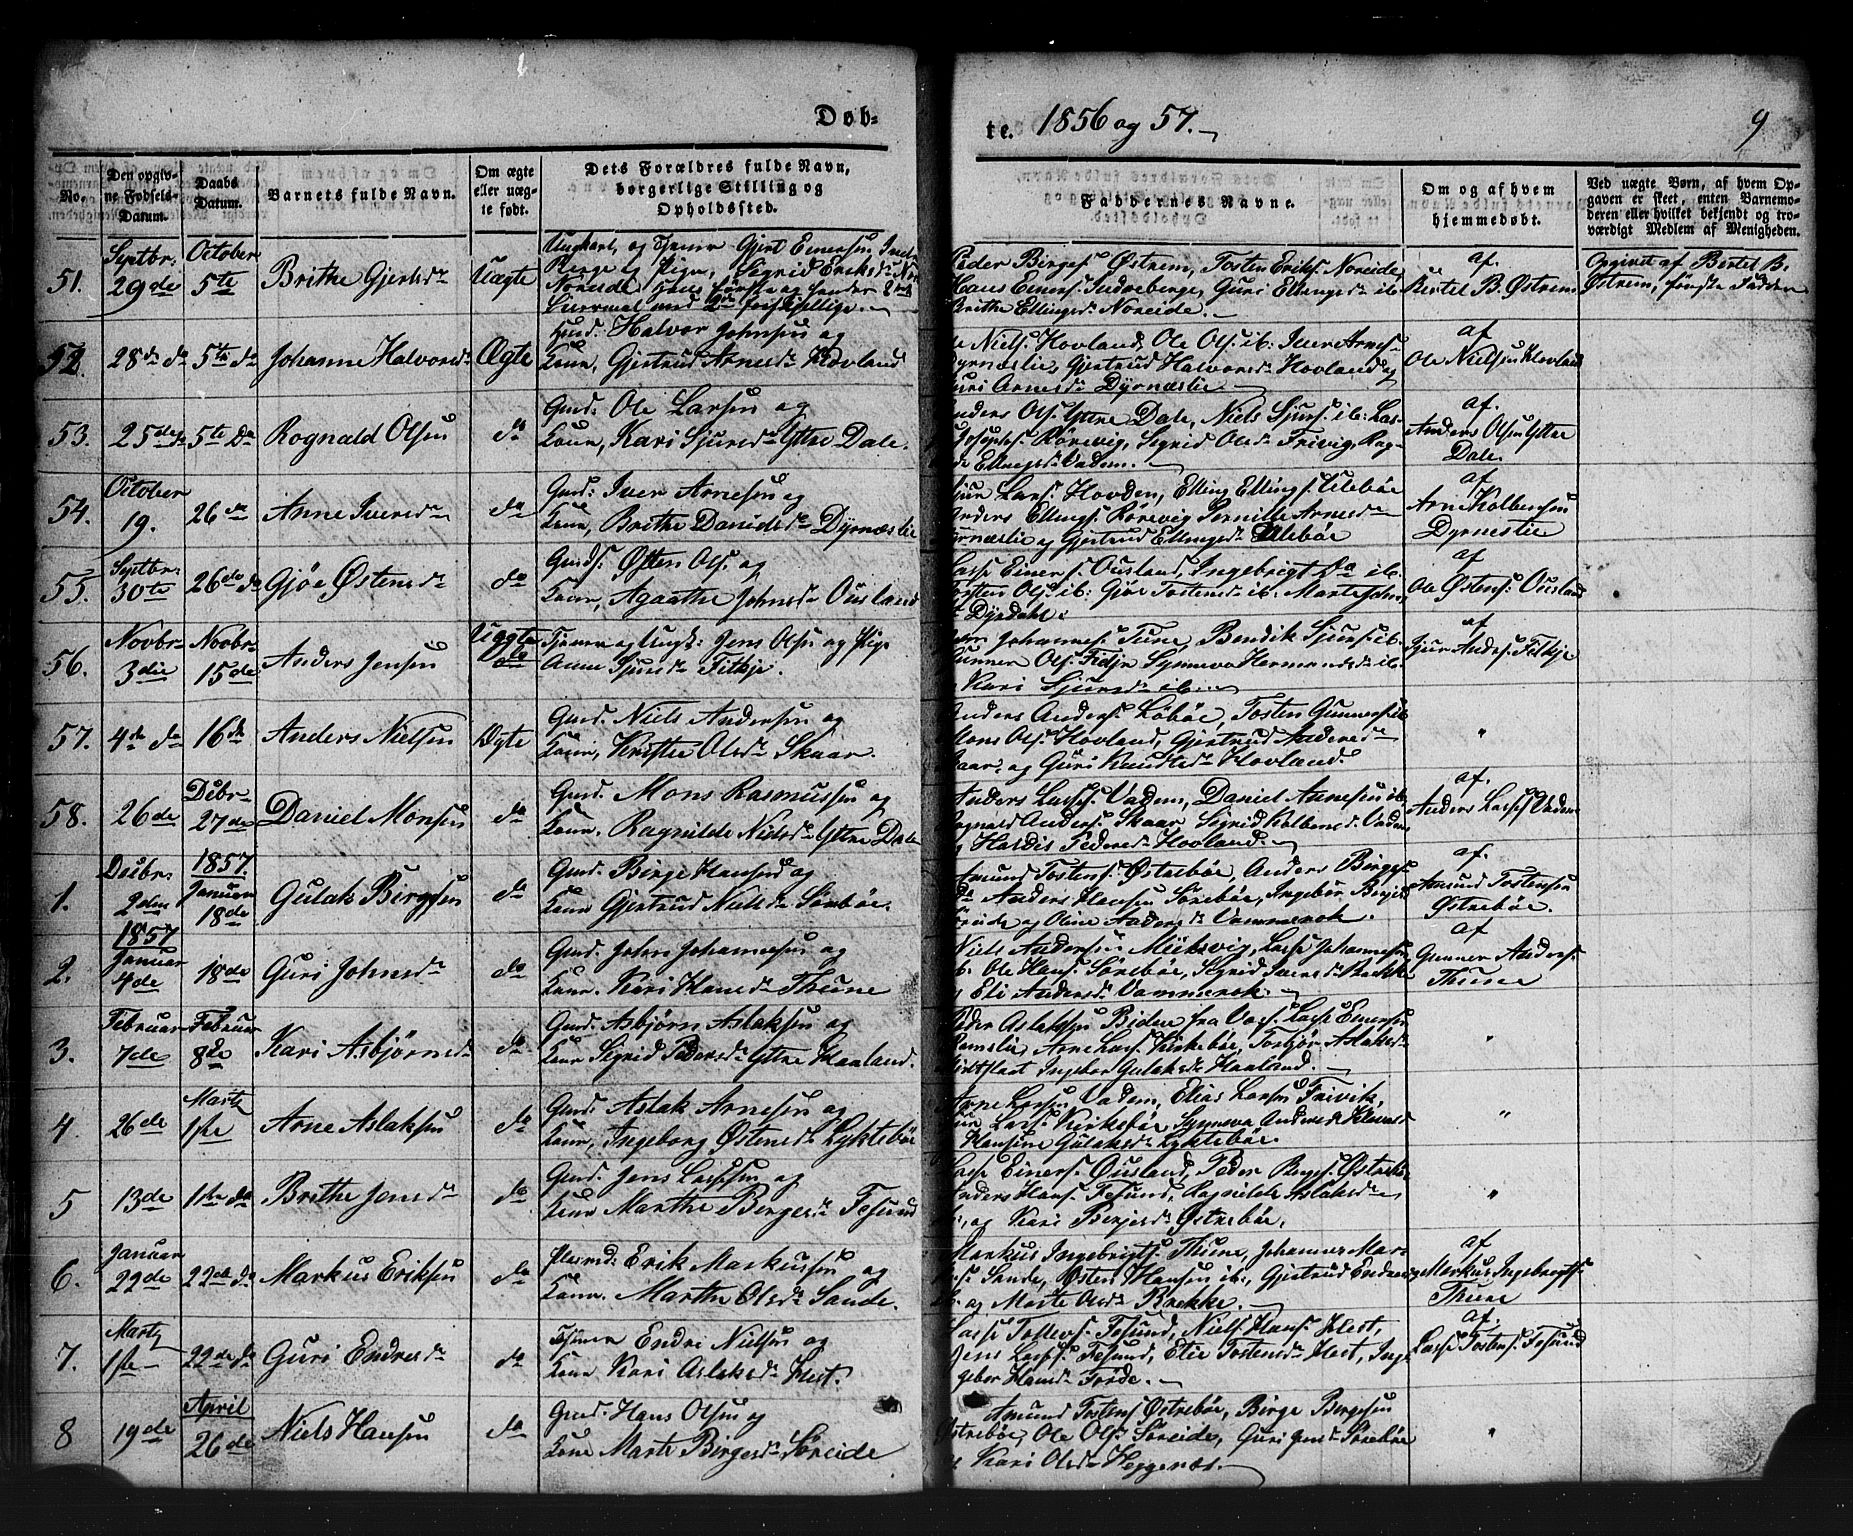 Døb-
te. 1856 og 57.
9
No.
Den opgiv-
ne Fødsels-
Datum.
Daabs
Datum.
Barnets fulde Navn.
Om ægte
eller uæg-
te født.
Dets Forældres fulde Navn,
borgerlige Stilling og
Opholdssted.
Faddernes Navne.
Om og af hvem
hjemmedøbt.
Ved uægte Børn, af hvem Op-
gaven er skeet, enten Barnemo-
deren eller hvilket bekjendt og tro-
værdigt Medlem af Menigheden.
51.
Septbr.
29de
October
5te
Brithe Gjertsdr
Uægte
Ungkarl og Gjert Einersen Indre
Berge og Pige, Sigrid Eriksdr
Noreide
Peder Birges. Østrem, Tosten Eriks. Noreide
Hans Einers. Indreberge, Guri Ellingsdr ib.
Brithe Ellingsdr Noreide.
af
Bertel B. Østrem
Opgivet af Bertel B.
Østrem, første Fadder
52.
28de do
5te do
Johanne Halvorsdr
Ægte
Gmd: Halvor Johnsen og
Kone, Gjertrud Arnesdr Hovland
Niels. Hovland. Ole Ols. ib: Iver Arnes.
Dyrnæslie, Gjertrud Halvorsdr Hovland og
Guri Arnesdr Dyrnæslie
af
Ole Nielsen Hovland
53.
25de
5te do
Rognald Olsen
do
Gmd: Ole Larsen og
Kone, Kari Sjursdr Yttre Dale.
Anders Ols. Yttre Dale, Niels Sjurs. ib: Lars
Josephs. Rörevig, Sigrid Olsdr Frivig, Rag-
Ellingsdr Vadem.
af.
Anders Olsen Yttre
Dale.
54.
October
19.
26de
Anne Iversdr
do
Gmd: Iver Arnesen og
Kone, Brithe Danielsdr Dyrnæslie
Sjur Lars. Hovden, Elling Ellings. Ulebøe
Anders Ellings. Rörevig Pernille Arnesdr
Dyrnæslie og Gjertrud Ellingsdr Ulebøe
af
Arne Kolbensen
Dyrneslie
55.
Septbr.
30te
26de do
Gjøe Østensdr
do
Gmd: Østen Ols. og
Kone, Agathe Johnsdr Ousland
Lasse Einers. Ousland, Ingebrigt Do ib.
Tosten Ols. ib: Gjøe Tostensdr ib. Marte Johns
Dyrdahl.
af
Ole Østens. Ousland
56.
Novbr.
3die
Novbr.
15de
Anders Jensen
Uægte
Tjener og Ungk: Jens Olsen og Pige
Anne Sjursdr Fitkje.
Johannes. Tune, Bendik Sjurs. ib.
Gunner Ols. Fidje Synneva Hermundsdr ib.
Kari Sjursdr ib.
af
Sjur Anders. Fitkje
57.
4de do
16de
Anders Nielsen
Ægte
Gmd. Niels Andersen og
Kone, Kristie Olsdr Skaar.
Anders Anders. Løbøe, Tosten Gunners. ib
Mons Ols. Hovland, Gjertrud Andersdr
Skaar, og Guri Knudtsdr Hovland.
"
58.
26de
Debr.
27de
Daniel Monsen
do
Gmd. Mons Rasmussen og
Kone. Ragnilde Nielsdr Yttre Dale
Anders Lars. Vadem, Daniel Arnesen ib.
Rognald Anders. Skaar Sigrid Kolbensd. Vadem
Hardis Pedersdr Hovland.
af.
Anders Lars. Vadem
1.
Debr.
2den
1857.
Januar
18de
Gulak Birgesen
do
Gmd. Birge Hansen og
Kone Gjertrud Nielsdr Sörebøe.
Amund Tostens. Østrebøe, Anders Birges.
do Anders Hansen Sörebøe, Ingebør Birges
og Oline Andersdr Vammerok.
af.
Amund Tostensen
Østrebøe.
2.
1857
Januar
4de
18de
Guri Johnsdr
do
Gmd. John Johannesen og
Kone. Kari Hansdr Thune
Niels Andersen Miiksvig, Lasse Johannesen
ib. Ole Hans. Sörebøe, Sigrid Iversdr Brekke
Eli Andersdr Vammerok.
af
Gunner Anders.
Thune
3.
Februar
7de
Februar
8de
Kari Asbjørnsdr
do
Gmd. Asbjørn Aslaksen og
Kone Sigrid Pedersdr Yttre Haaland.
Peder Aslaksen Biden fra Vors. Lasse Einersen
Ramslie, Arne Lars. Kirkebøe, Tosbjør Aslaksdr
Ingebor Gulaksdr Haaland.
"
4.
26de
Marts
1ste
Arne Aslaksen
do
Gmd. Aslak Arnesen og
Kone, Ingeborg Østensdr Lyktebøe
Arne Larsen Vadem, Elias Larsen Frivik,
Lars. Kirkebøe, Synneva Andersdr
Hansine Gulaksdr Lyktebøe.
"
5
13de
1ste do
Brithe Jensdr
do
Gmd. Jens Lassesen og
Kone Marthe Bergesdr Fesund
Lasse Einers. Ousland, Peder Birges. Østrebøe
Anders Hans. Fesund, Ragnilde Aslaksdr
ib., og Kari Bergesdr Østrebøe.
"
6.
Januar
22de
22de do
Markus Eriksen
do
Plasmd: Erik Markussen og
Kone. Marthe Olsdr Sande.
Markus Ingebrigts. Thune, Johannes Mar-
kus. Sande, Østen Hansen ib., Gjertrud
ib. og Marte Olsdr Brekke.
af
Markus Ingebrigts.
Thune
7.
Marts
1ste
22de do
Guri Endresdr
do
Tjener Endre Nielsen og
Kone Kari Aslaksdr Hest.
Lasse Tollevs. Fesund, Niels Hans. Hest,
Jens Lars. Fesund, Elie Tostensdr Hest, Inge-
gebor Hansdr Förde.
af.
Lasse Tostens. Fesund
8
19de
April
26de
Niels Hansen
do
Gmd. Hans Olsen og
Kone Marte Birgesdr Söreide
Amund Tostens. Østrebøe, Birge Bergesen
Østrebøe, Ole Ols. Söreide, Guri Jensdr Sörebøe
Kari Olsdr Heggenæs.
"